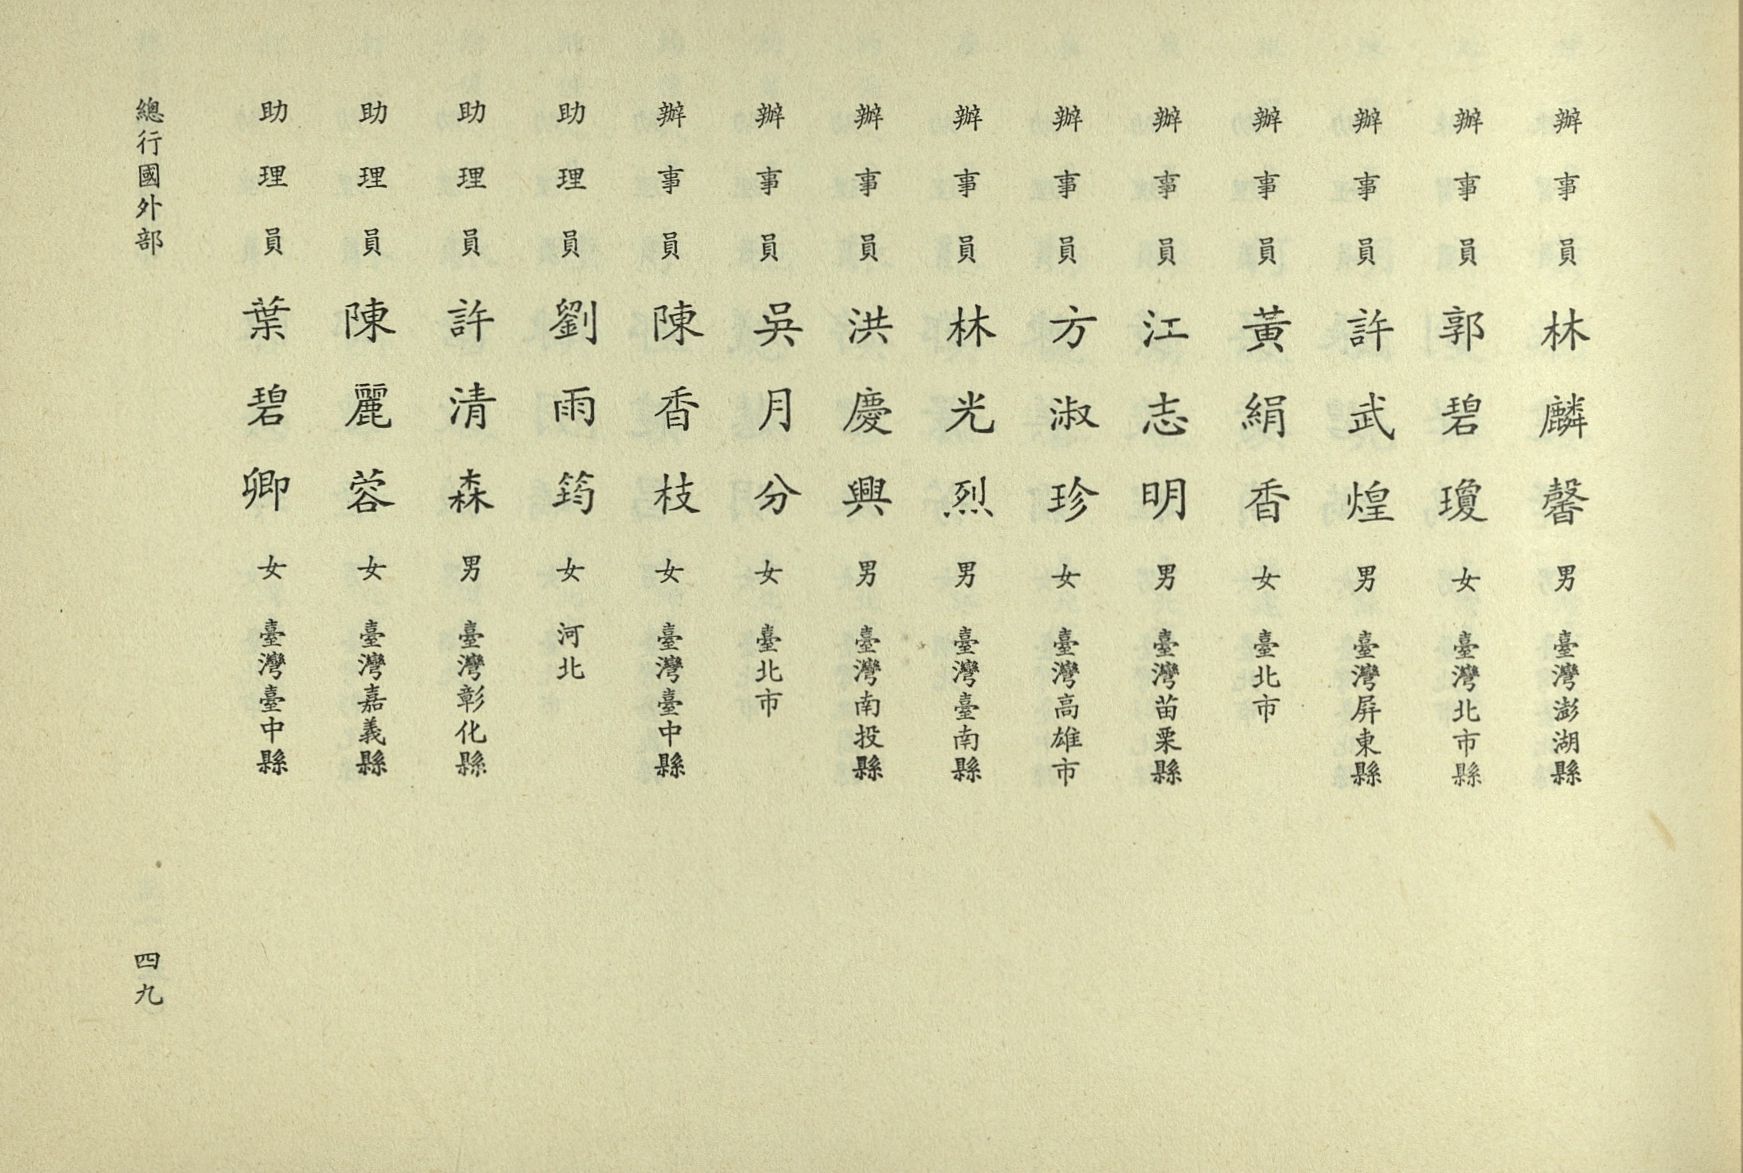 辦事員 林麟馨 男 臺灣澎湖縣
辦事員 郭碧瓊 女 臺灣北市縣
辦事員 許武煌 男 臺灣屏東縣
辦事員 黃絹香 女 臺北市
辦事員 江志明 男 臺灣苗栗縣
辦事員 方淑珍 女 臺灣高雄市
辦事員 林光烈 男 臺灣臺南縣
辦事員 洪慶興 男 臺灣南投縣
辦事員 吳月分 女 臺北市
辦事員 陳香枝 女 臺灣臺中縣
助理員 劉雨筠 女 河北
助理員 許清森 男 臺灣彰化縣
助理員 陳麗蓉 女 臺灣嘉義縣
助理員 葉碧卿 女 臺灣臺中縣
總行國外部
四九